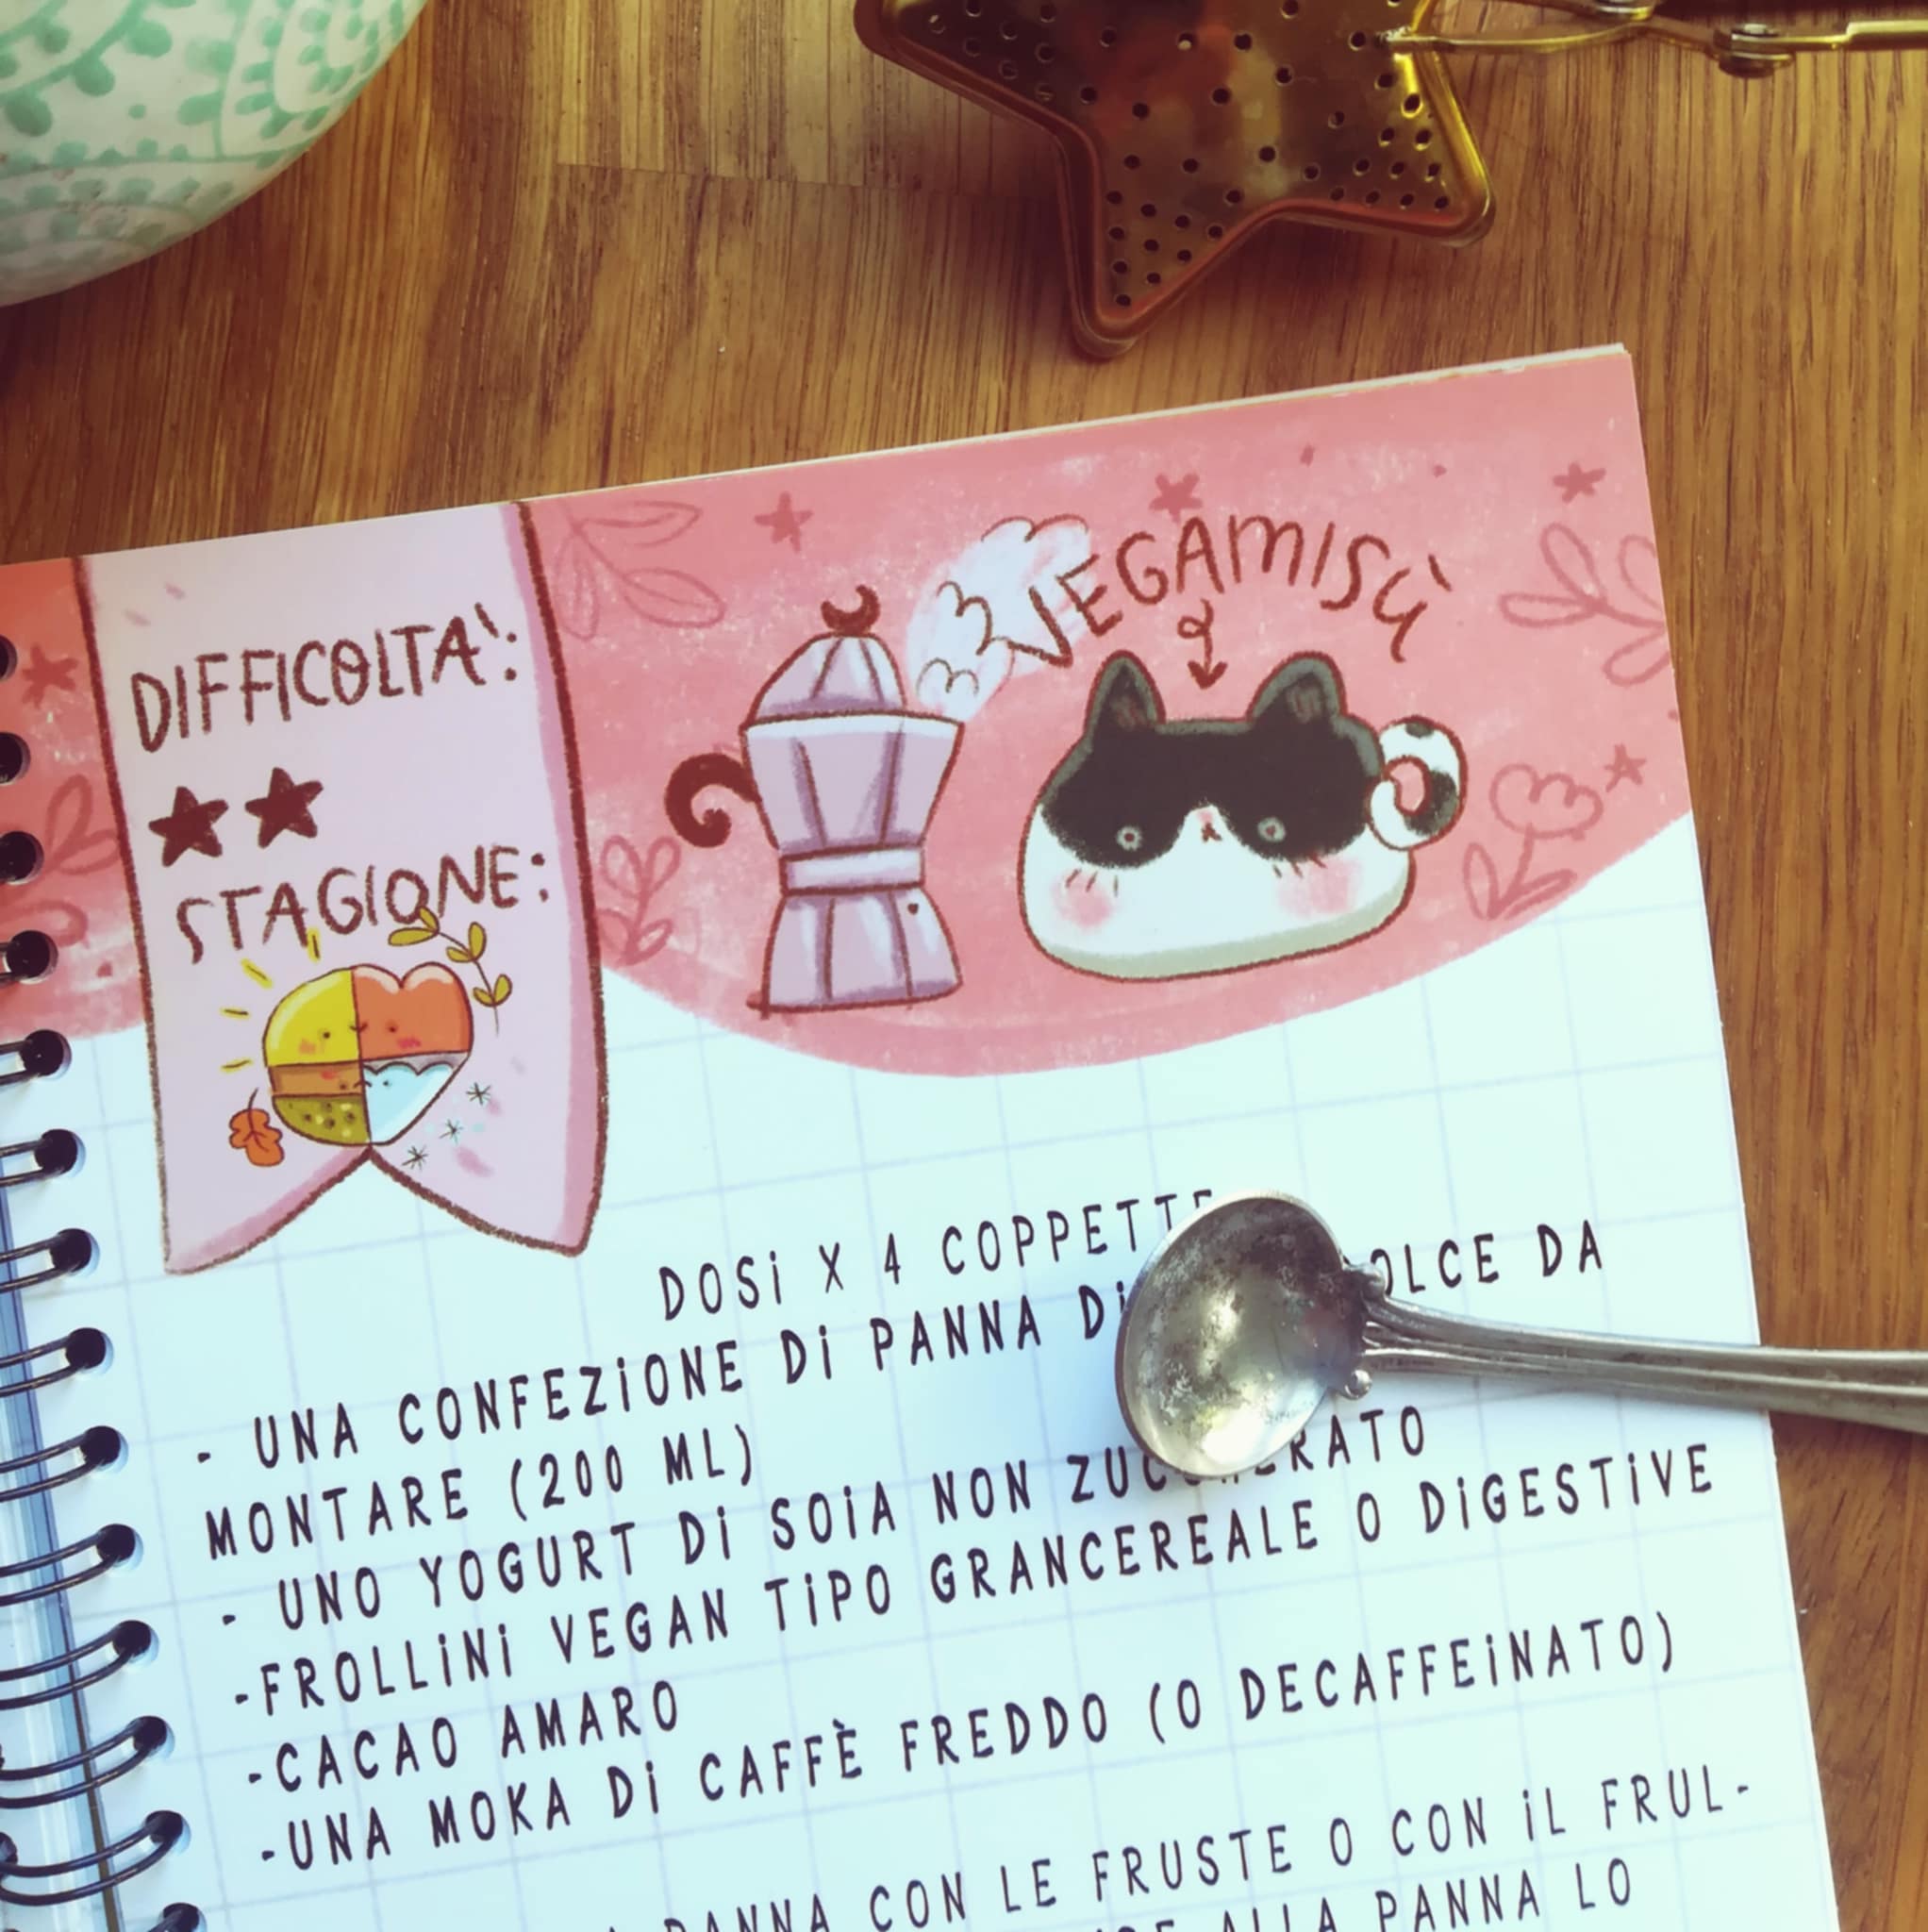 DIFFICOLTA':
STAGIONE:
VEGAMISÙ
DOSi X 4 COPPETTE
- UNA CONFEZiONE Di PANNA Di DOLCE DA
MONTARE (200 ML)
- UNO YOGURT Di SOiA NON ZUCCHERATO
-FROLLiNi VEGAN TiPO GRANCEREALE O DiGESTiVE
-CACAO AMARO
-UNA MOKA Di CAFFÈ FREDDO (O DECAFFEiNATO)
PANNA CON LE FRUSTE O CON iL FRUL-
ALLA PANNA LO